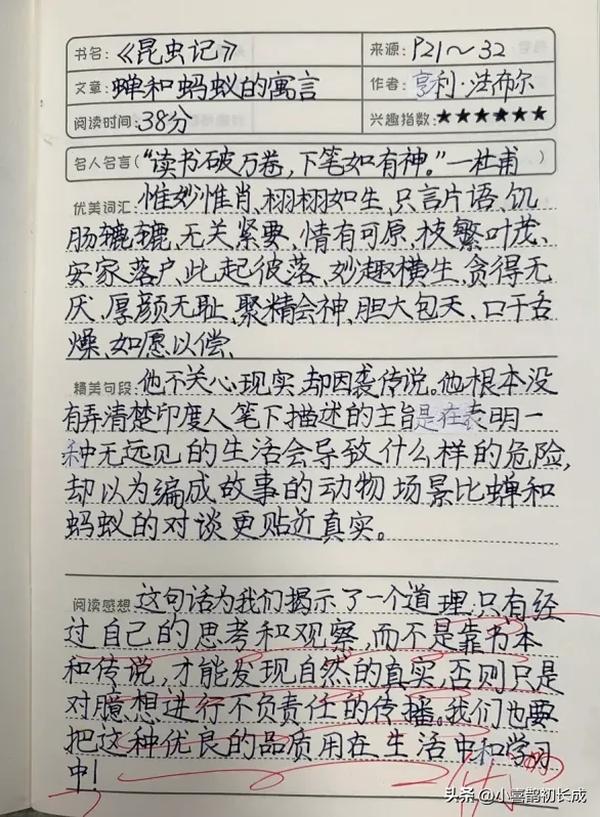 书名: 《昆虫记》 来源: P21～32
文章: 蝉和蚂蚁的寓言 作者: 亨利·法布尔
阅读时间: 38分 兴趣指数: ★★★★★★
名人名言(“读书破万卷,下笔如有神。”—杜甫 )
优美词汇 惟妙惟肖、栩栩如生、只言片语、饥
肠辘辘、无关紧要、情有可原、枝繁叶茂、
安家落户、此起彼落、妙趣横生、贪得无
厌、厚颜无耻、聚精会神、胆大包天、口干舌
燥、如愿以偿、
精美句段 他不关心现实,却因袭传说。他根本没
有弄清楚印度人笔下描述的主旨是在表明一
种无远见的生活会导致什么样的危险,
却以为编成故事的动物场景比蝉和
蚂蚁的对谈更贴近真实。
阅读感想 这句话为我们揭示了一个道理,只有经
过自己的思考和观察,而不是靠书本
和传说,才能发现自然的真实,否则只是
对臆想进行不负责任的传播。我们也要
把这种优良的品质用在生活中和学习
中!
头条 @小喜鹊初长成